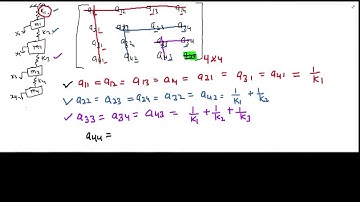 K₁
x₁ m₁
K₂
x₂ m₂
K₃
x₃ m₃
x₄ m₄
a₁₁ a₁₂ a₁₃ a₁₄
a₂₁ a₂₂ a₂₃ a₂₄
a₃₁ a₃₂ a₃₃ a₃₄
a₄₁ a₄₂ a₄₃ a₄₄
4x4
✓ a₁₁ = a₁₂ = a₁₃ = a₁₄ = a₂₁ = a₃₁ = a₄₁ = 1/K₁
✓ a₂₂ = a₂₃ = a₂₄ = a₃₂ = a₄₂ = 1/K₁ + 1/K₂
✓ a₃₃ = a₃₄ = a₄₃ = 1/K₁ + 1/K₂ + 1/K₃
a₄₄ =